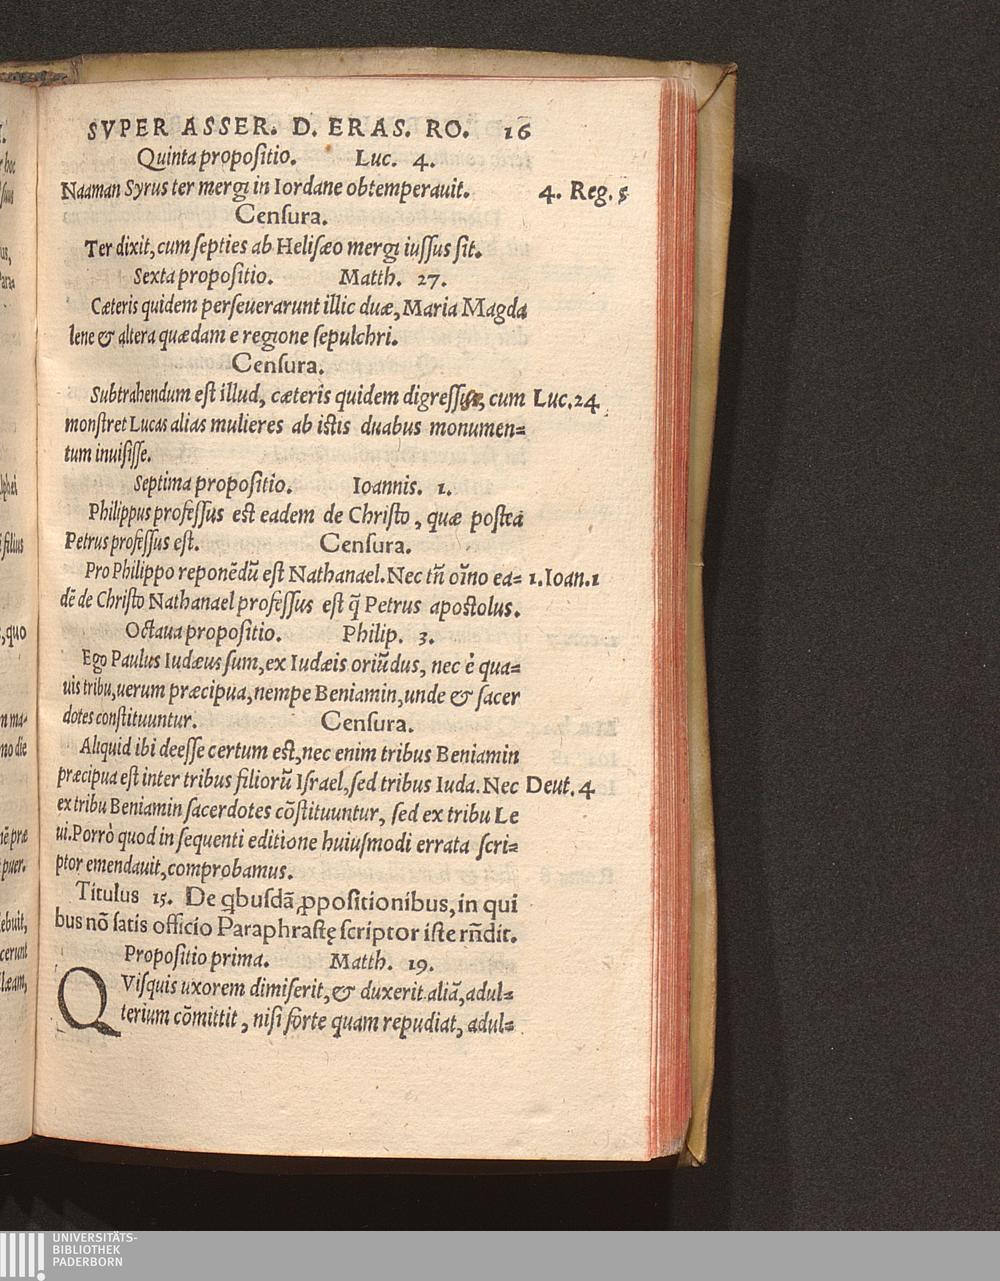 SVPER ASSER. D. ERAS. RO. 16
Quinta propositio. Luc. 4.
Naaman Syrus ter mergi in Iordane obtemperauit. 4. Reg. 5
Censura.
Ter dixit, cum septies ab Helisæo mergi iussus sit.
Sexta propositio. Matth. 27.
Cæteris quidem perseuerarunt illic duæ, Maria Magda
lene & altera quædam e regione sepulchri.
Censura.
Subtrahendum est illud, cæteris quidem digressis, cum Luc. 24
monstret Lucas alias mulieres ab istis duabus monumen=
tum inuisisse.
Septima propositio. Ioannis. 1.
Philippus professus est eadem de Christo, quæ postea
Petrus professus est. Censura.
Pro Philippo reponẽdũ est Nathanael. Nec tñ oĩno ea= 1. Ioan. 1
dẽ de Christo Nathanael professus est q̃ Petrus apostolus.
Octaua propositio. Philip. 3.
Ego Paulus Iudæus sum, ex Iudæis oriũdus, nec è qua=
uis tribu, uerum præcipua, nempe Beniamin, unde & sacer
dotes constituuntur. Censura.
Aliquid ibi deesse certum est, nec enim tribus Beniamin
præcipua est inter tribus filiorũ Israel, sed tribus Iuda. Nec Deut. 4
ex tribu Beniamin sacerdotes cõstituuntur, sed ex tribu Le
ui. Porrò quod in sequenti editione huiusmodi errata scri=
ptor emendauit, comprobamus.
Titulus 15. De qbusdã ꝓpositionibus, in qui
bus nõ satis officio Paraphrastę scriptor iste rñdit.
Propositio prima. Matth. 19.
QVisquis uxorem dimiserit, & duxerit aliã, adul=
terium cõmittit, nisi forte quam repudiat, adul=
UNIVERSITÄTS-
BIBLIOTHEK
PADERBORN